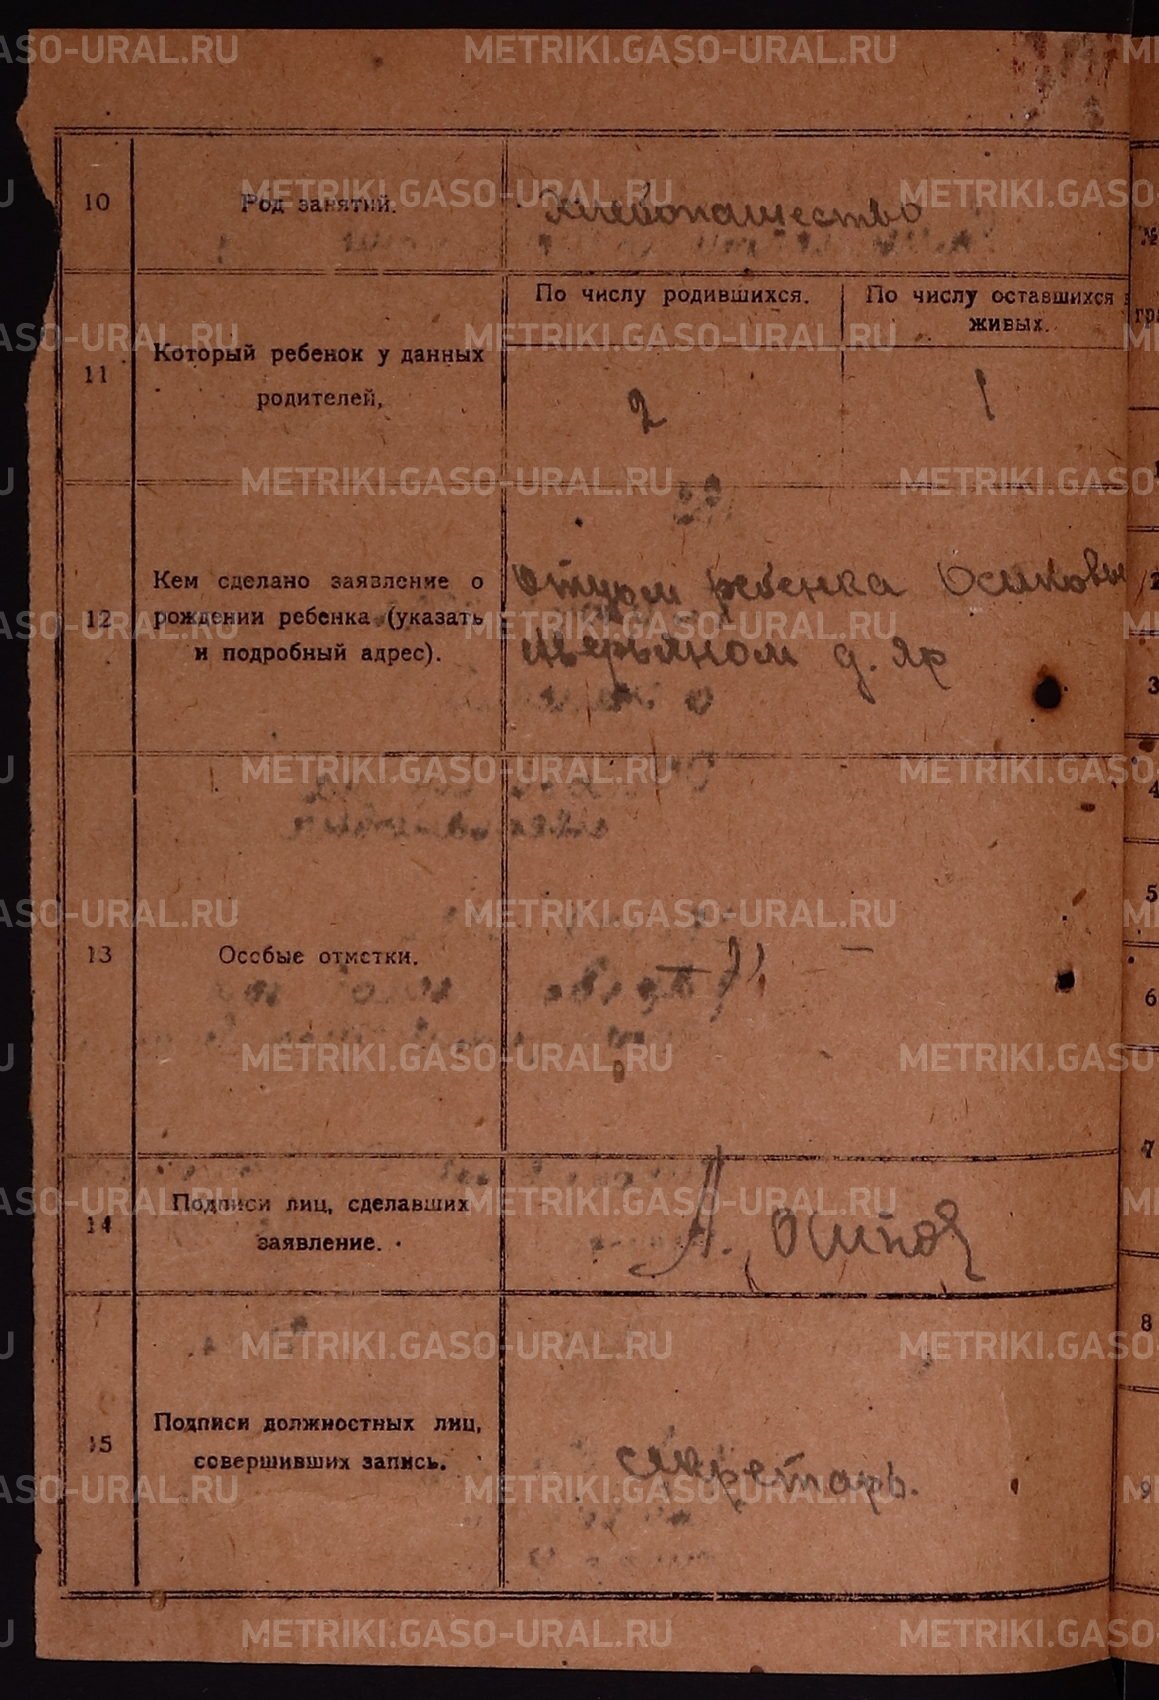 METRIKI.GASO-URAL.RU
10
Род занятий.
Хлебопашество
11
Который ребенок у данных
родителей,
По числу родившихся.
По числу оставшихся
живых.
2
1
12
Кем сделано заявление о
рождении ребенка (указать
и подробный адрес).
отцом ребенка Осиповым
д. Яр
13
Особые отметки.
—
14
Подписи лиц, сделавших
заявление.
А. Осипов
15
Подписи должностных лиц,
совершивших запись.
секретарь.
№
2
3
4
5
6
7
8
9